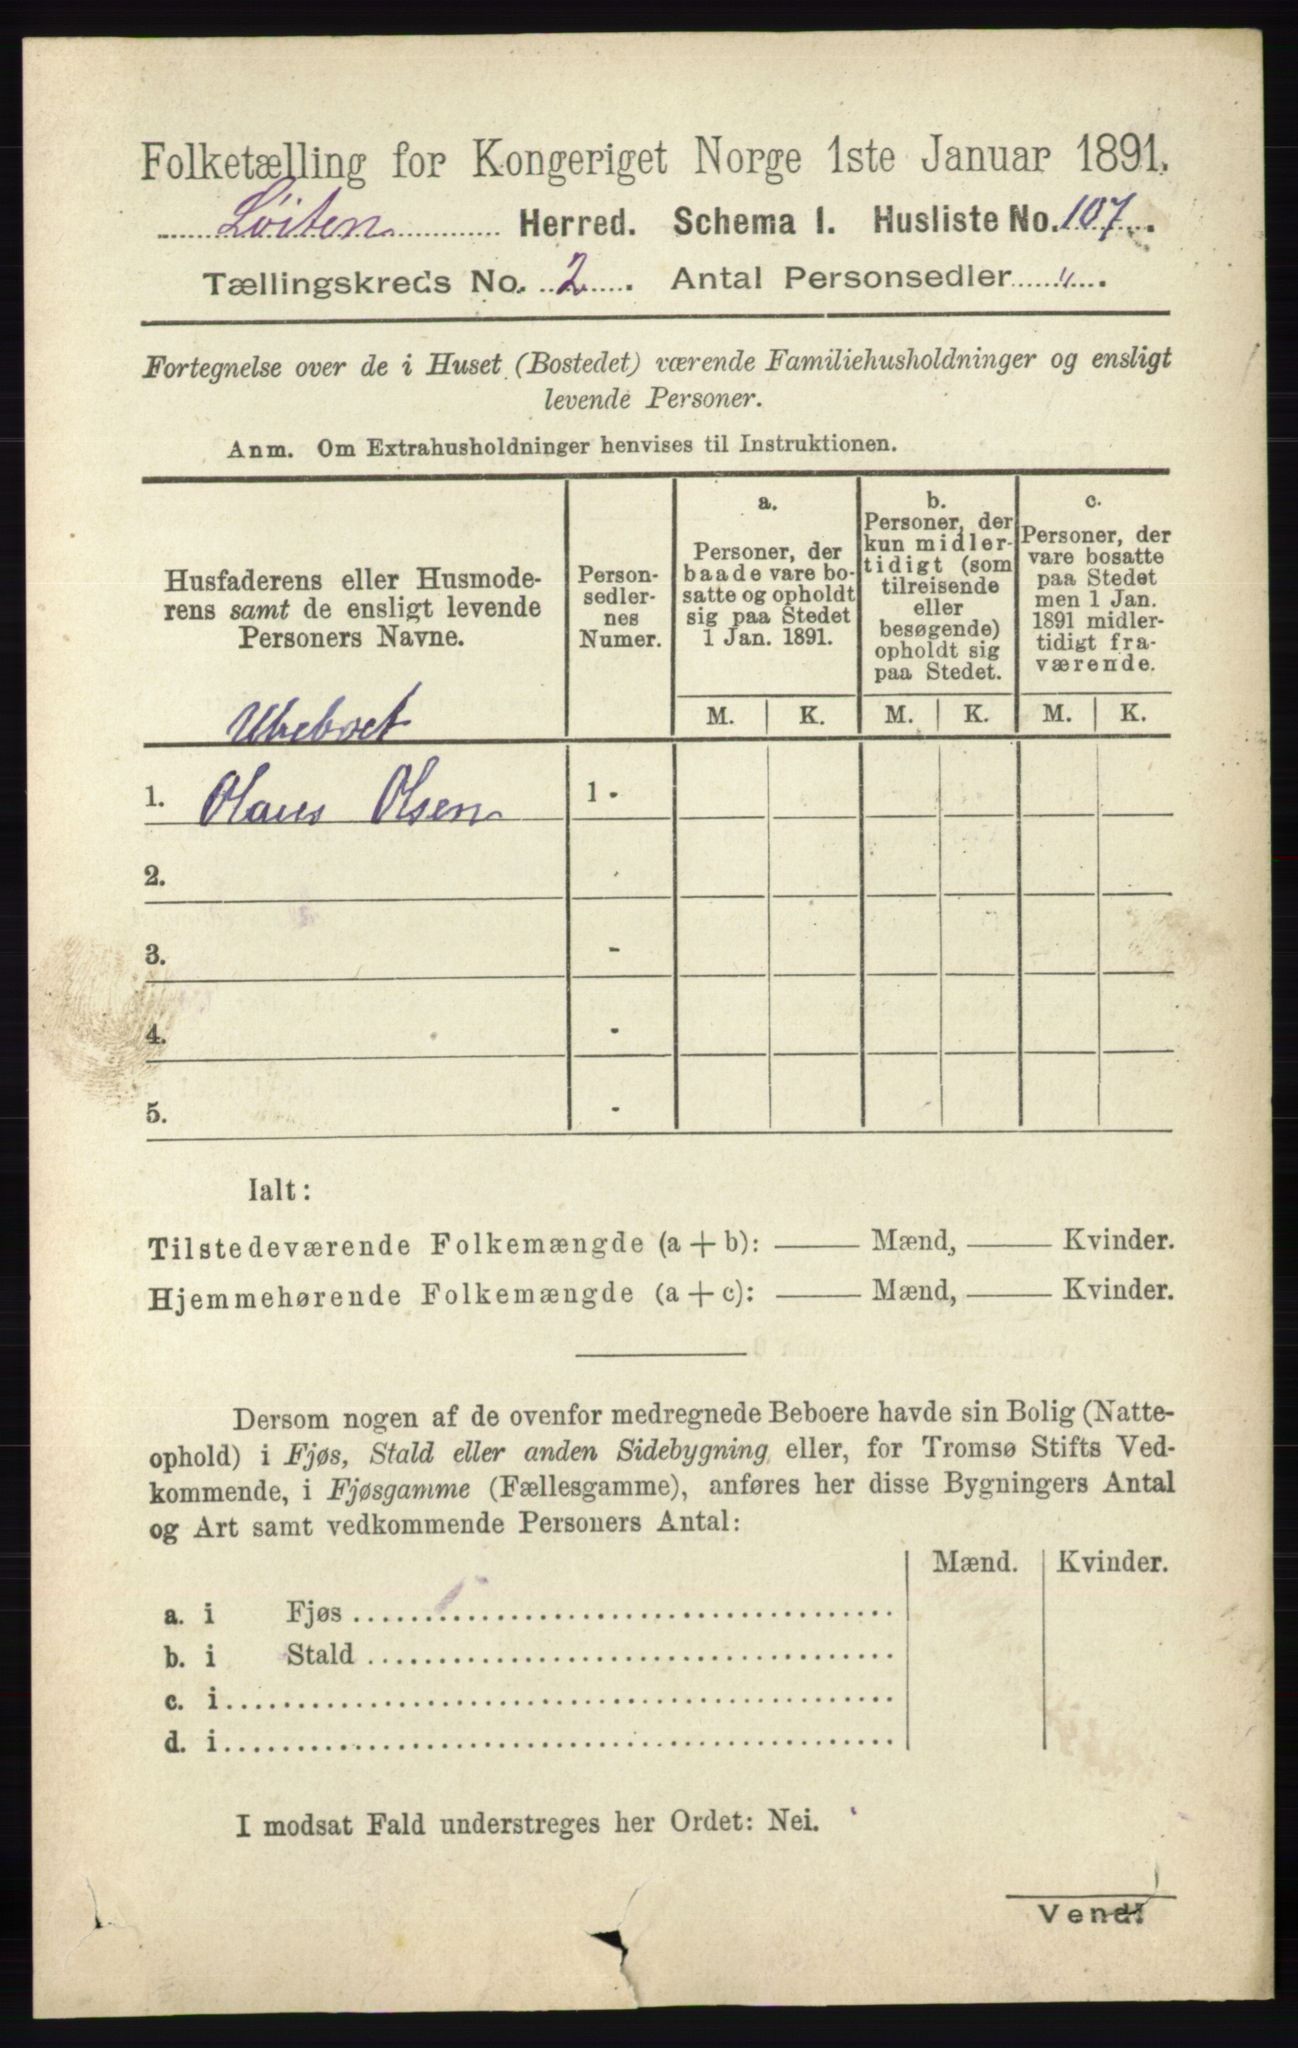 Folketælling for Kongeriget Norge 1ste Januar 1891.
Løiten Herred. Schema I. Husliste No. 107.
Tællingskreds No. 2. Antal Personsedler " .
Fortegnelse over de i Huset (Bostedet) værende Familiehusholdninger og ensligt
levende Personer.
Anm. Om Extrahusholdninger henvises til Instruktionen.
Husfaderens eller Husmode-
rens samt de ensligt levende
Personers Navne.
Person-
sedler-
nes
Numer.
a.
Personer, der
baade vare bo-
satte og opholdt
sig paa Stedet
1 Jan. 1891.
b.
Personer, der
kun midler-
tidigt (som
tilreisende
eller
besøgende)
opholdt sig
paa Stedet.
c.
Personer, der
vare bosatte
paa Stedet
men 1 Jan.
1891 midler-
tidigt fra-
værende.
M. K. M. K. M. K.
Ubeboet
1. Olaus Olsen 1 -
2.
3. -
4. -
5. -
Ialt:
Tilstedeværende Folkemængde (a + b): —— Mænd, —— Kvinder.
Hjemmehørende Folkemængde (a + c): —— Mænd, —— Kvinder.
Dersom nogen af de ovenfor medregnede Beboere havde sin Bolig (Natte-
ophold) i Fjøs, Stald eller anden Sidebygning eller, for Tromsø Stifts Ved-
kommende, i Fjøsgamme (Fællesgamme), anføres her disse Bygningers Antal
og Art samt vedkommende Personers Antal:
Mænd. Kvinder.
a. i Fjøs
b. i Stald
c. i
d. i
I modsat Fald understreges her Ordet: Nei.
Vend!